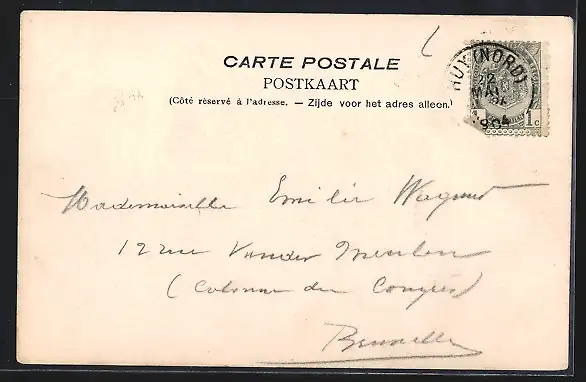 CARTE POSTALE
POSTKAART
(Côté réservé à l'adresse. — Zijde voor het adres alleen.)
HUY (NORD)
2
MAI
1 c
Mademoiselle Emilie Wagener
12 rue Vander Meulen
(Colonne du Congrès)
Bruxelles